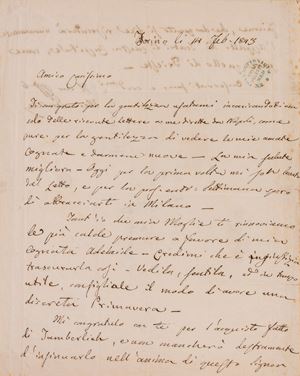 Torino li 14 Feb. 1843
Amico carissimo
Ti son grato per la gentilezza
delle rimesse lettere a me dirette da Napoli, come
pure per la gentilezza di vedere la mia amata
Cognata e darmene nuove — La mia salute
migliora — Oggi per la prima volta mi
dal letto, e per la profonda settimana spero
di abbracciarti in Milano —
Tant'io che mia Moglie ti rinnoviamo
le più calde premure a favore di mia
Cognata Adelaide — Credimi che è
trascurarla così — Vedila, sentila, in tempo
utile, consigliale il modo di avere una
discreta Primavera —
Mi congratulo con te per l'acquisto fatto
di Tamberlich, e non mancherò destramente
d'insinuarlo nell'anima di questo Signor